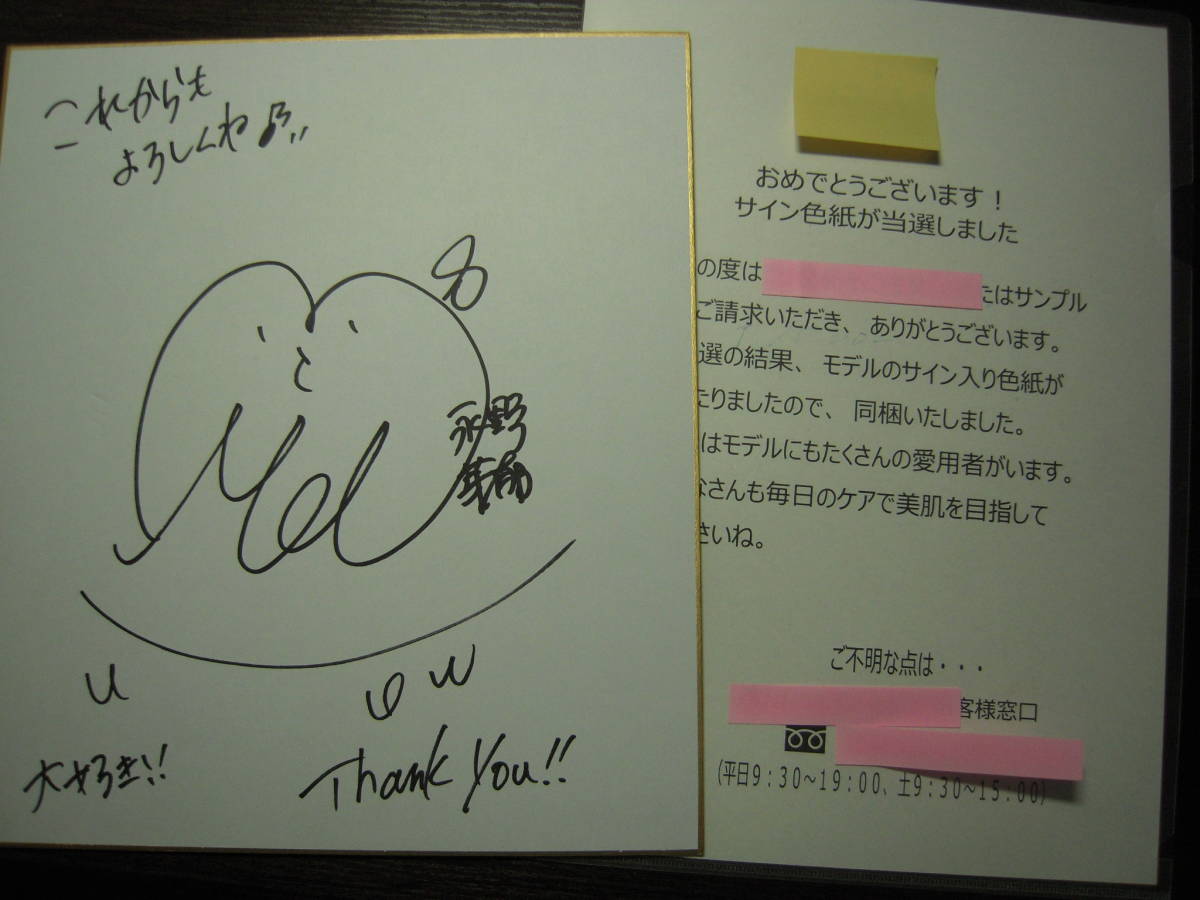 これからも
よろしくね♪!!
永野
芽郁
大好き!!
Thank You!!
おめでとうございます！
サイン色紙が当選しました
の度は
たはサンプル
ご請求いただき、ありがとうございます。
選の結果、モデルのサイン入り色紙が
たりましたので、同梱いたしました。
はモデルにもたくさんの愛用者がいます。
なさんも毎日のケアで美肌を目指して
さいね。
ご不明な点は・・・
客様窓口
(平日9:30~19:00、土9:30~15:00)